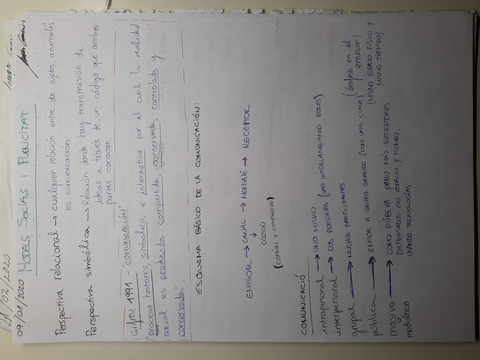 09/01/2020 MODES SOCIAS I PUBLICITAT
Perspectiva relacional → cualquier relación entre dos sujetos, animales
es comunicación.
Perspectiva simbólica → Relación donde hay transmisión de
ideas a través de un código que ambas
partes conocen.
1991 - "COMUNICACIÓN"
"proceso histórico, simbólico, e interactivo por el cual la realidad
social es producida, compartida, conservada, controlada y
conservada".
ESQUEMA BÁSICO DE LA COMUNICACIÓN:
EMISOR → CANAL → MENSAJE → RECEPTOR
CÓDIGO
(COMÚN Y CONOCIDO)
COMUNICACIÓ
intrapersonal → UNO MISMO
interpersonal → DOS PERSONAS (VAN INTERCAMBIANDO ROLES)
grupal → MUCHOS PARTICIPANTES
pública → EMISOR A GRUPO GRANTE (COMO UNA CLASE) (MISMO ESPACIO FÍSICO Y
MISMO TIEMPO)
masiva → COMO PÚBLICA PERO MÁS RECEPTORES,
DISPERSADOS EN ESPACIO Y TIEMPO,
USANDO TECNOLOGÍAS
mediática